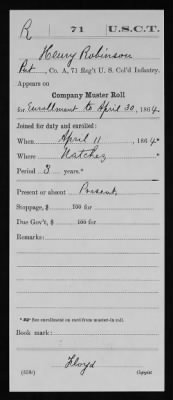 R | 71 | U.S.C.T.
Henry Robinson
Pvt, Co. A, 71 Reg't U. S. Col'd Infantry.
Appears on
Company Muster Roll
for Enrollment to April 30, 1864.
Joined for duty and enrolled:
When April 11, 1864*
Where Natchez
Period 3 years.*
Present or absent Present
Stoppage, $ 100 for
Due Gov't, $ 100 for
Remarks:
* See enrollment on card from muster-in roll.
Book mark:
Floyd
(358c) Copyist